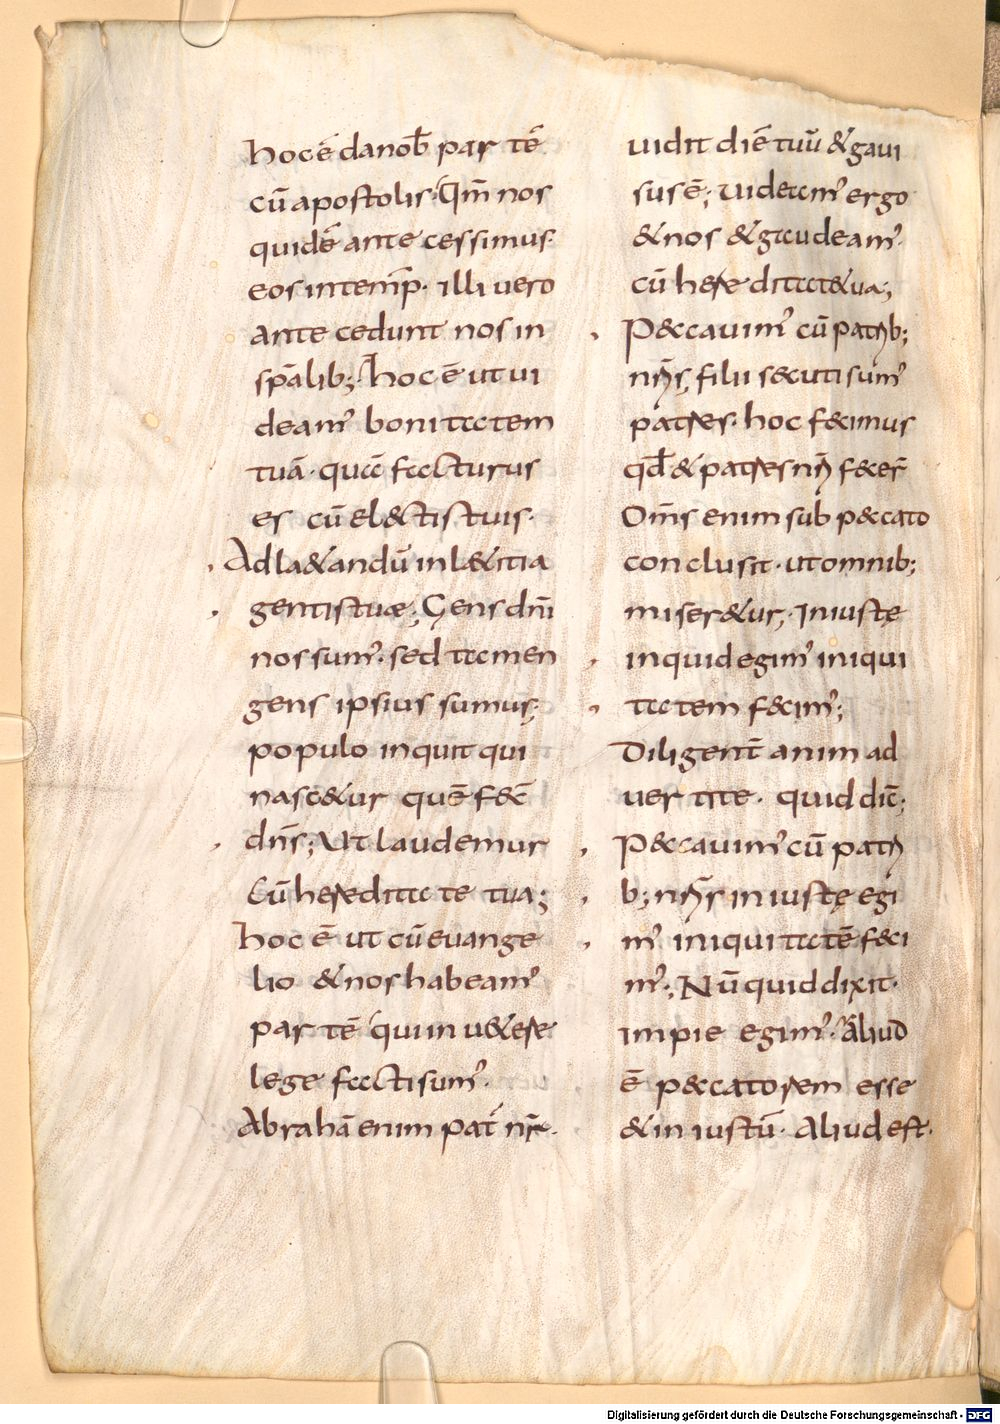 hoc ē da nob̄ partē
cū apostolis· Qm̄ nos
quidē antecessimus·
eos in temp̄· illi vero
antecedunt nos in
sp̄alib; · hoc ē ut vi
deam' bonitatem
tuā· quā facturus
es cū el&ctis tuis·
Ad la&andū in lætitia
gentis tuæ; Gens dn̄i
nos sum'· sed tamen
gens ipsius sumus;
populo inquit qui
nasc&ur quē fec̄
dn̄s; Ut laudemur
Cū heredita te tua;
hoc ē ut cū evange
lio & nos habeam'
partē qui in v&ere
lege facti sum'·
Abrahā enim pat̄ nr̄·
vidit diē tuū & gavi
sus ē; videam' ergo
& nos & gaudeam'·
cū hereditate tua;
Peccavim' cū patrib;
nr̄is; filii secuti sum'
patres· hoc fecimus
qd̄ & patres nr̄i fecer̄
Om̄s enim sub peccato
conclusit· ut omnib;
miser&ur; Iniustę
inquid egim' iniqui
tatem fecim';
Diligent̄ animad
vertite· quid dic̄;
Peccavim' cū patri
b; nr̄is iniustę egi
m' iniquitatē feci
m'; Nūquid dixit·
impie egim'· Aliud
ē peccatorem esse
& iniustū· Aliud est·
Digitalisierung gefördert durch die Deutsche Forschungsgemeinschaft - DFG